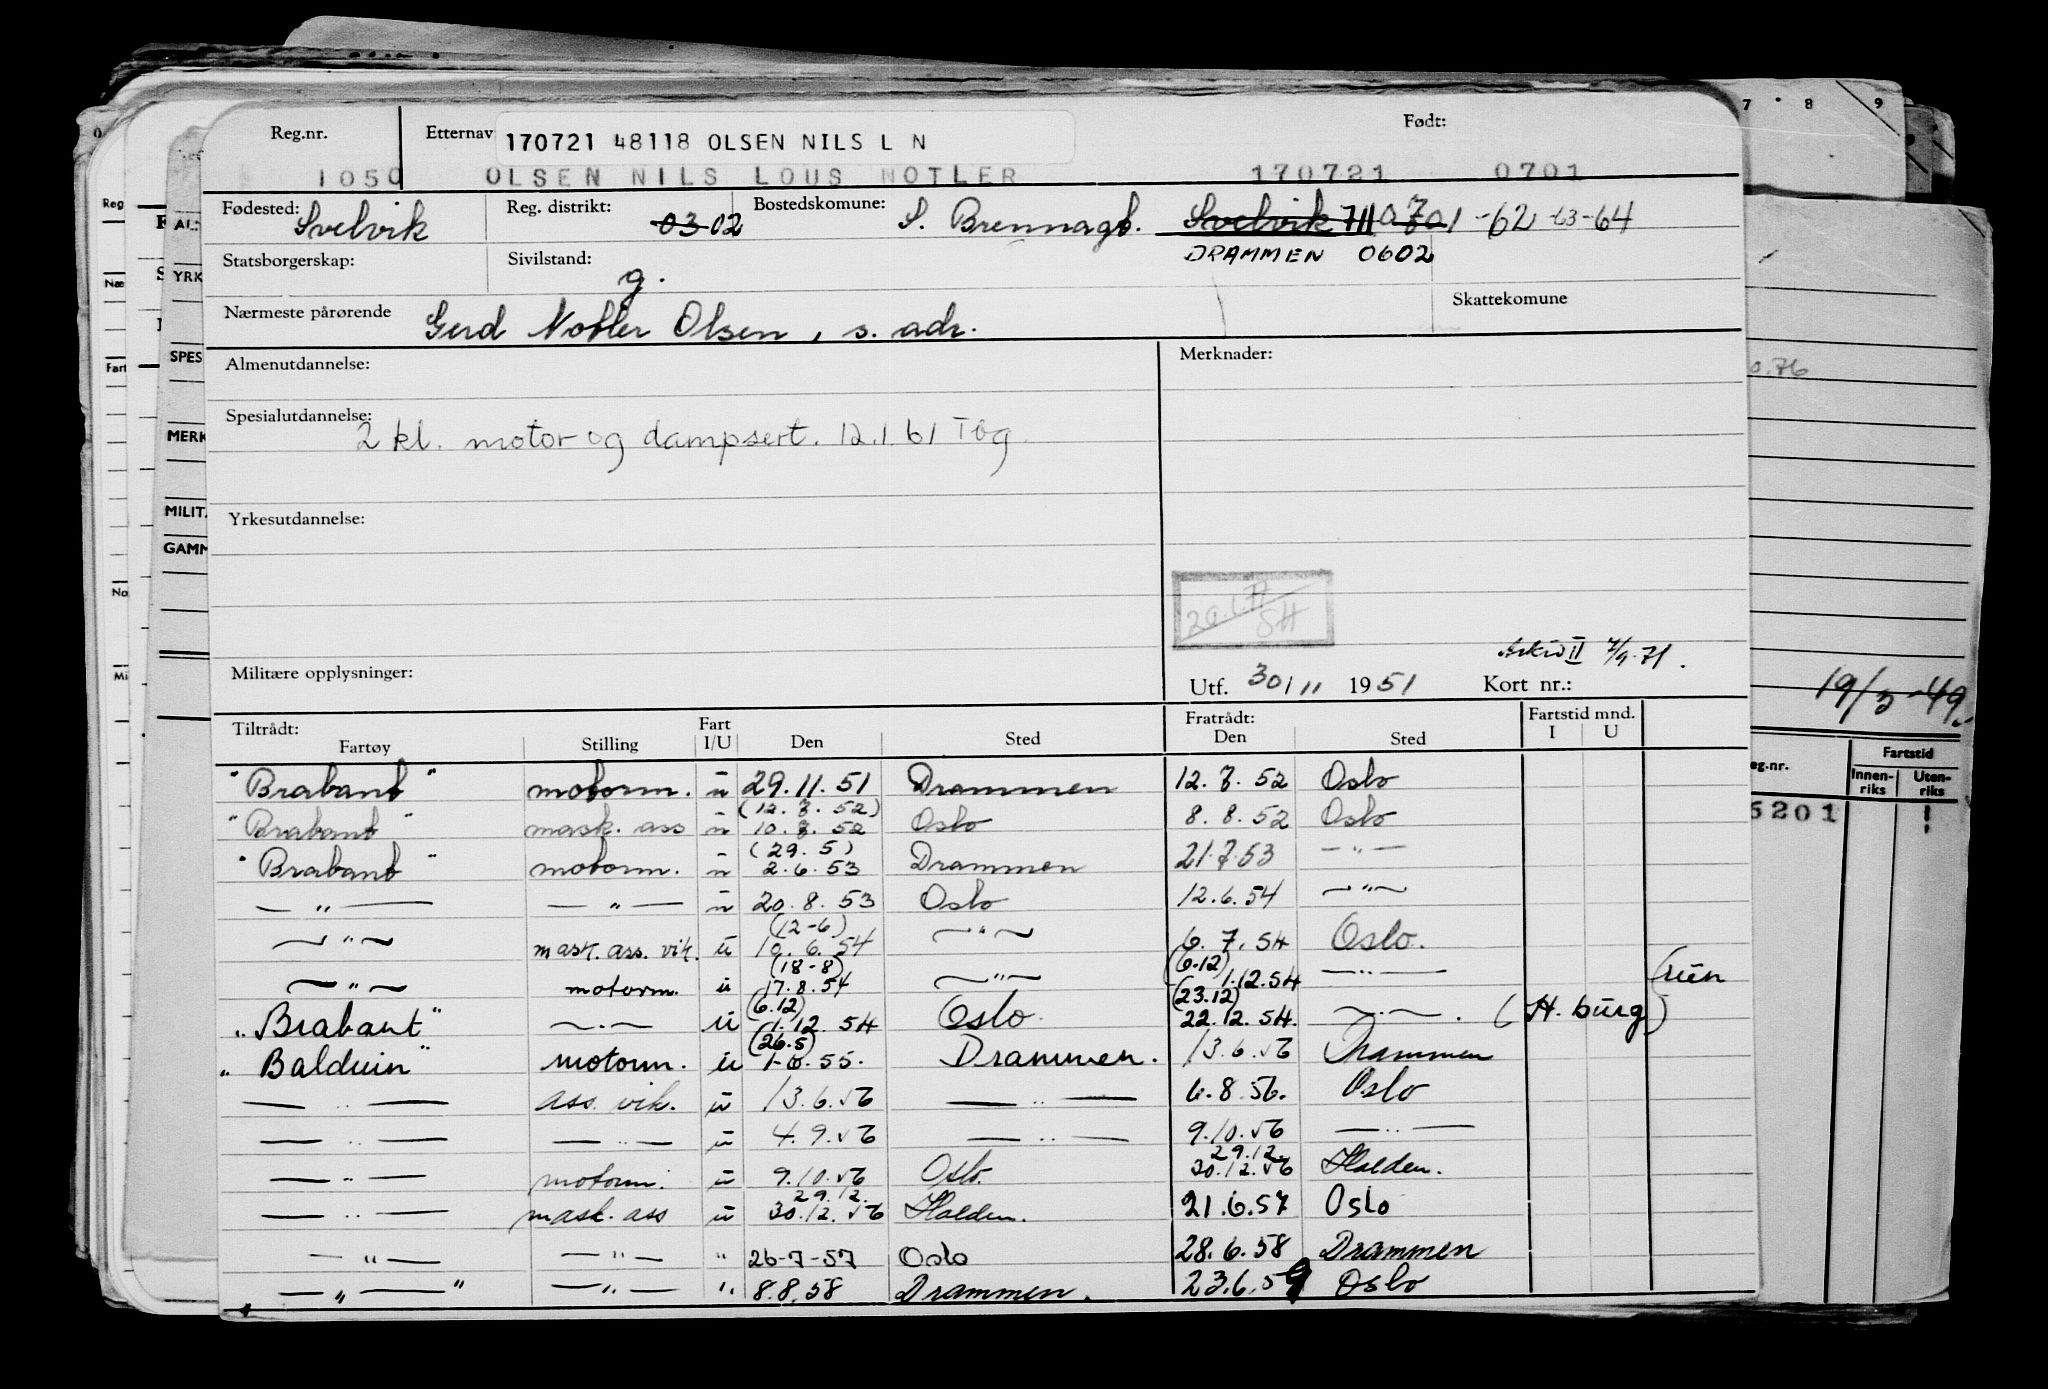 Reg.nr. Etternavn 170721 48118 OLSEN NILS L N Født:
1050 OLSEN NILS LOUS NOTLER 170721 0701
Fødested: Svelvik Reg. distrikt: 03 02 Bostedskomune: S. Brennagt. Svelvik 711 0701 -62 -63 -64
DRAMMEN 0602
Statsborgerskap: Sivilstand: g.
Nærmeste pårørende Gerd Notler Olsen, s. adr. Skattekomune
Almenutdannelse: Merknader:
Spesialutdannelse: 2 kl. motor og dampsert. 12.1.61 Tbg.
Yrkesutdannelse:
20.1.71 SH
Arkiv II 7/9.71.
Militære opplysninger: Utf. 30/11 1951 Kort nr.:
Tiltrådt: Fart Fratrådt: Fartstid mnd.
Fartøy Stilling I/U Den Sted Den Sted I U
"Brabant" motorm. u 29.11.51 Drammen 12.7.52 Oslo
(12.7.52)
"Brabant" mask. ass u 10.7.52 Oslo 8.8.52 Oslo
(29.5)
"Brabant" motorm. u 2.6.53 Drammen 21.7.53 — " —
— " — — " — u 20.8.53 Oslo 12.6.54 — " —
(12-6)
— " — mask. ass. vik. u 10.6.54 — " — 6.7.54 Oslo.
(18-8) (6.12)
— " — motorm. u 17.8.54 — " — 1.12.54 — " —
(6.12) (23.12)
"Brabant" — " — u 1.12.54 Oslo 22.12.54. — " —. (H. burg)
(26.5)
"Balduin" motorm. u 1-6.55. Drammen. 13.6.56 Drammen
— " — ass. vik. u 13.6.56 — " — 6.8.56. Oslo
— " — — " — u 4.9.56 — " — 9.10.56 — " —
29.12.
— " — motorm. u 9.10.56 Oslo. 30.12.56 Halden.
29.12.
— " — mask. ass u 30.12.56 Halden. 21.6.57 Oslo
— " — — " — " 26-7-57 Oslo 28.6.58 Drammen
— " — — " — " 8.8.58 Drammen. 23.6.59 Oslo
7 8 9
0.76
19/3-49.
eg.nr. Fartstid
Innen-riks Uten-riks
5201
Reg
Næ
Fart
No
Mi
YRK
SPES
MERK
MILITÆ
GAMM